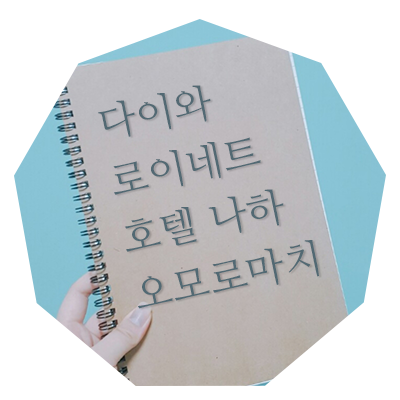 다이와
로이네트
호텔 나하
오모로마치